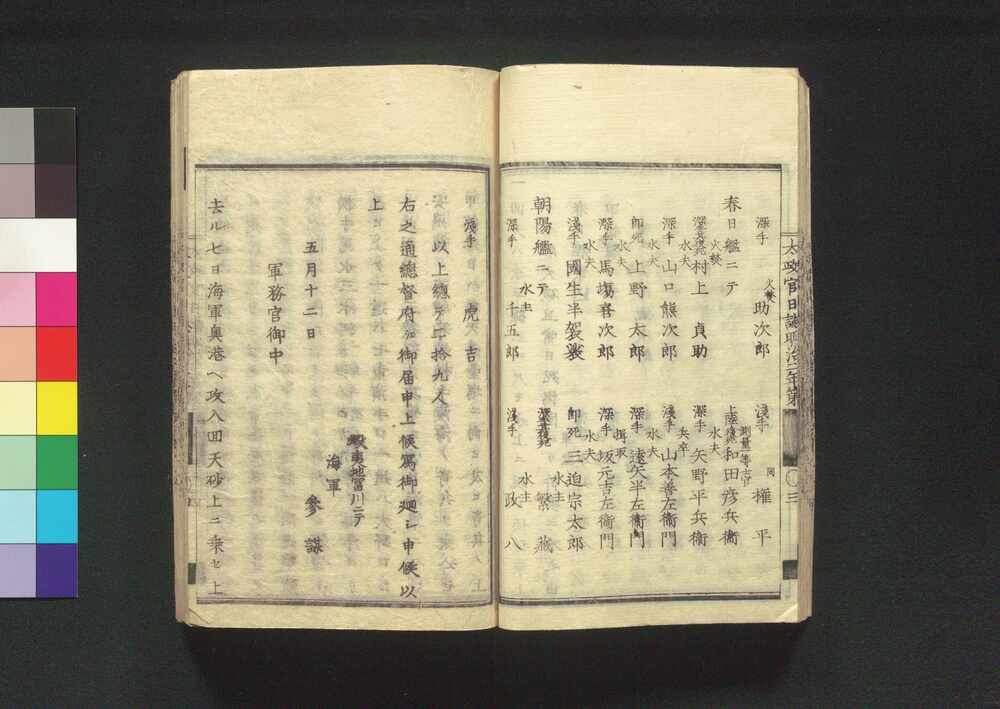 太政官日誌明治二年第
三
深手 火焚 助次郎
淺手 同 權平
春日艦ニテ
測量一等士官 和田彦兵衞
火焚 村上貞助
深手 水夫 矢野平兵衞
深手 水夫 山口熊次郎
淺手 兵卒 山本善左衞門
即死 水夫 上野太郎
深手 水夫 遠矢半左衞門
深手 水夫 馬塲喜次郎
深手 坂元吉左衞門
淺手 國生半袈裟
即死 水夫 三迫宗太郎
朝陽艦ニテ
水主 繁藏
深手 水主 千五郎
淺手 水主 政八
淺手 虎吉
以上總テ二拾九人
右之通總督府ヨリ御届申上候寫御廻シ申候以
上
蝦夷地富川ニテ
海軍
參謀
五月十二日
軍務官御中
去ル七日海軍奥港ヘ攻入回天砂上ニ乗セ上